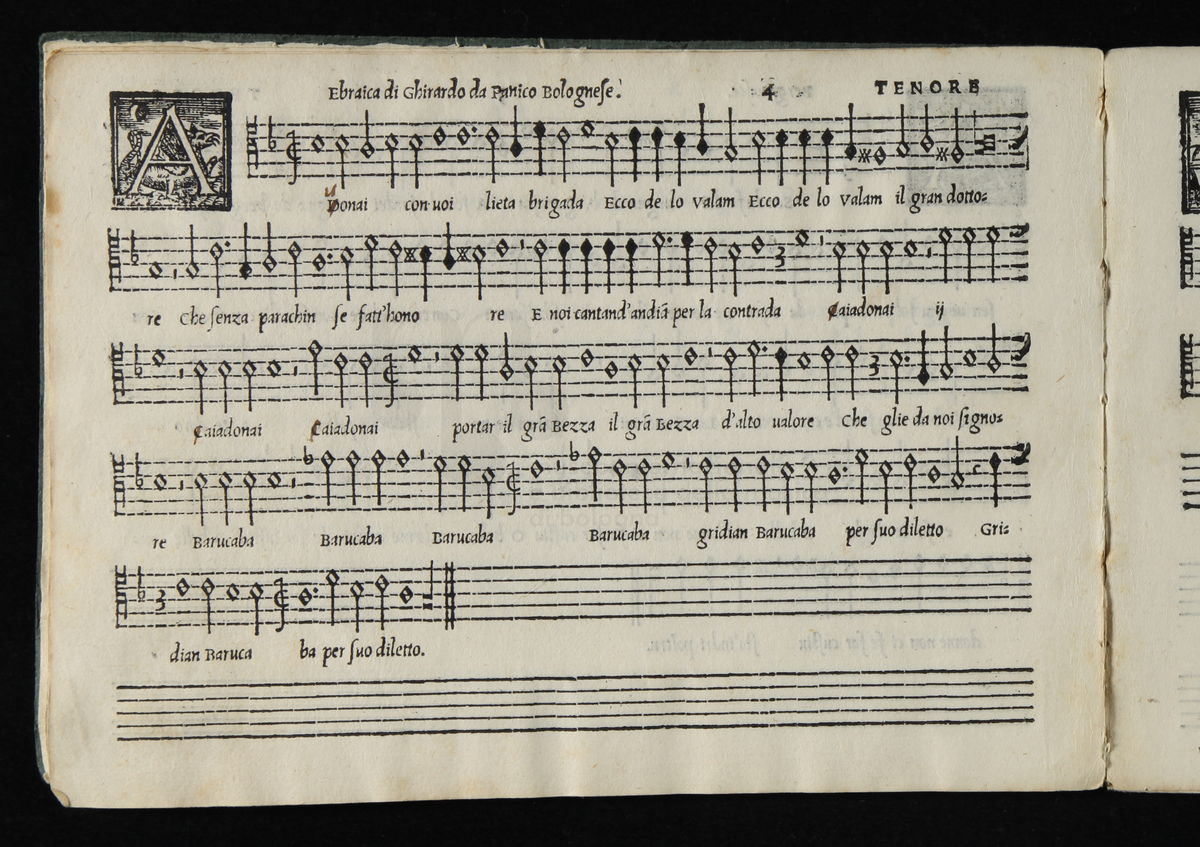 Ebraica di Ghirardo da Panico Bolognese. 4 TENORE
ADonai con uoi lieta brigada Ecco de lo Valam Ecco de lo Valam il gran dotto=
re Che senza parachin se fatt'hono re E noi cantand'andiã per la contrada Caiadonai ij
Caiadonai Caiadonai portar il grã Bezza il grã Bezza d'alto ualore Che glie da noi signo=
re Barucaba Barucaba Barucaba Barucaba gridian Barucaba per suo diletto Gri=
dian Baruca ba per suo diletto.